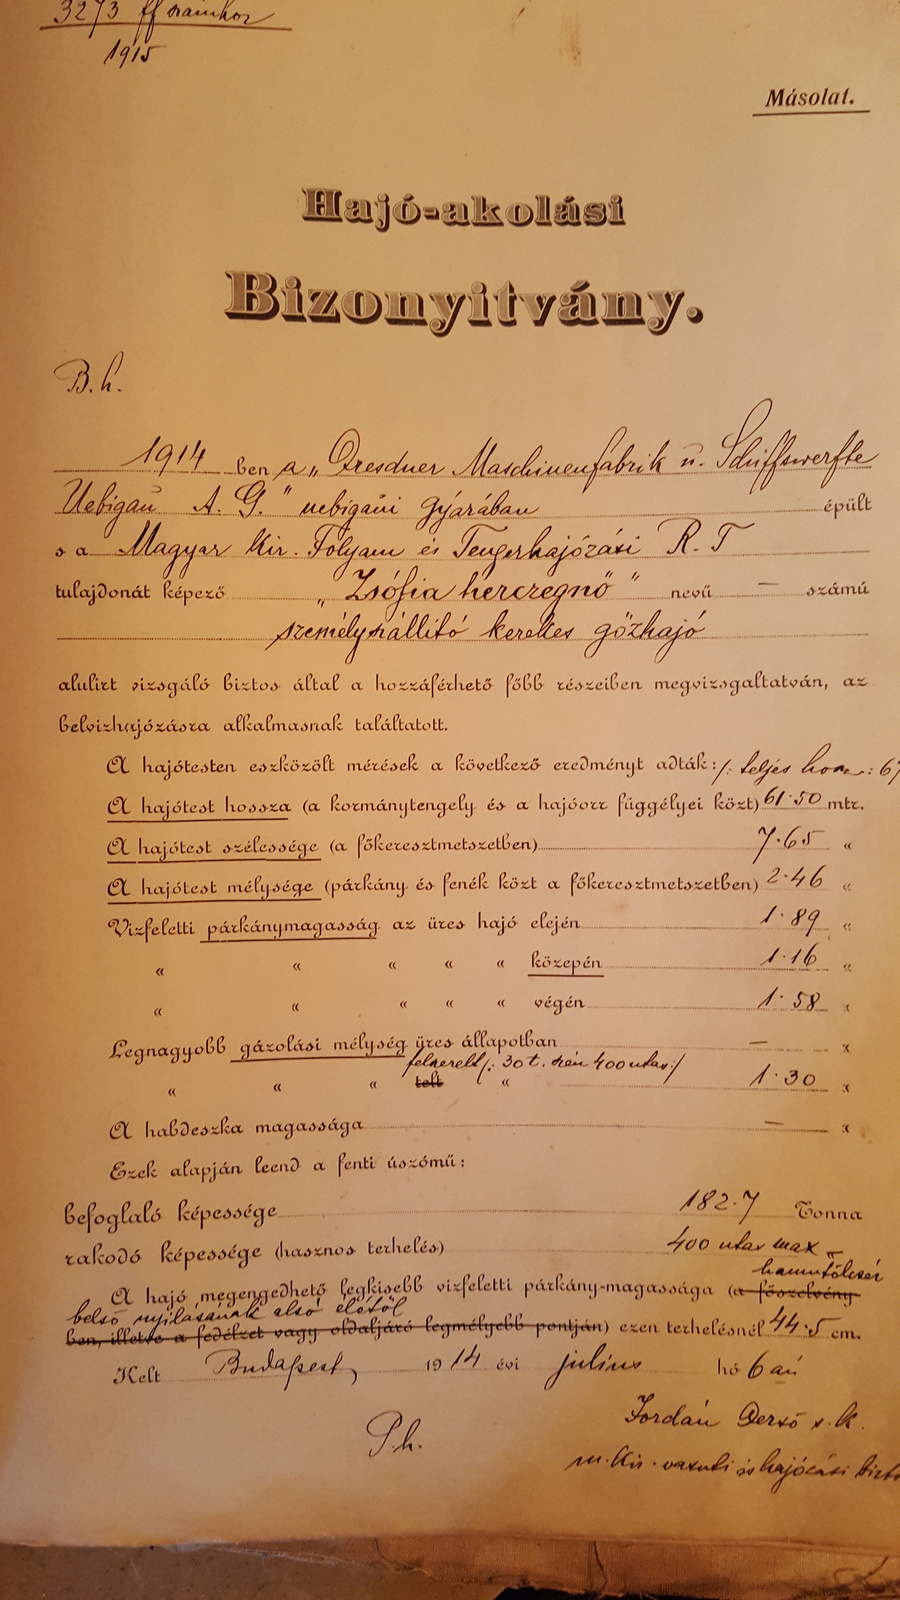 3273 ff számhoz
1915
Másolat.
Hajó-akolási
Bizonyitvány.
B. h.
1914 ben a „Dresdner Maschinenfabrik u. Schiffswerfte
Uebigau A. G." uebigaui gyárában épült
s a Magyar Kir. Folyam és Tengerhajózási R. T
tulajdonát képező „Zsófia herczegnő" nevű — számú
személyszállitó kerekes gőzhajó
alulirt vizsgáló biztos által a hozzáférhető főbb részeiben megvizsgaltatván, az
belvizhajózásra alkalmasnak találtatott.
A hajótesten eszközölt mérések a következő eredményt adták: /: teljes hossz: 67
A hajótest hossza (a kormánytengely és a hajóorr függélyei közt) 61·50 mtr.
A hajótest szélessége (a főkeresztmetszetben) 7·65 "
A hajótest mélysége (párkány és fenék közt a főkeresztmetszetben) 2·46 "
Vizfeletti párkánymagasság az üres hajó elején 1·89 "
" " " " " közepén 1·16 "
" " " " " végén 1·58 "
Legnagyobb gázolási mélység üres állapotban — "
felszerelt /: 30 t. szén 400 utas :/
" " " telt " 1·30 "
A habdeszka magassága — "
Ezek alapján leend a fenti úszómű:
befogláló képessége 182·7 Tonna
rakodó képessége (hasznos terhelés) 400 utas max "
hamutölcsér
A hajó megengedhető legkisebb vizfeletti párkány-magassága (a főszelvény-
belső nyilásának alsó élétől
ben, illetve a fedélzet vagy oldaljáró legmélyebb pontján) ezen terhelésnél 44·5 cm.
Kelt Budapest, 1914 évi julius hó 6 án
Jordán Dezső s. k.
P. h.
m. kir. vasuti és hajózási